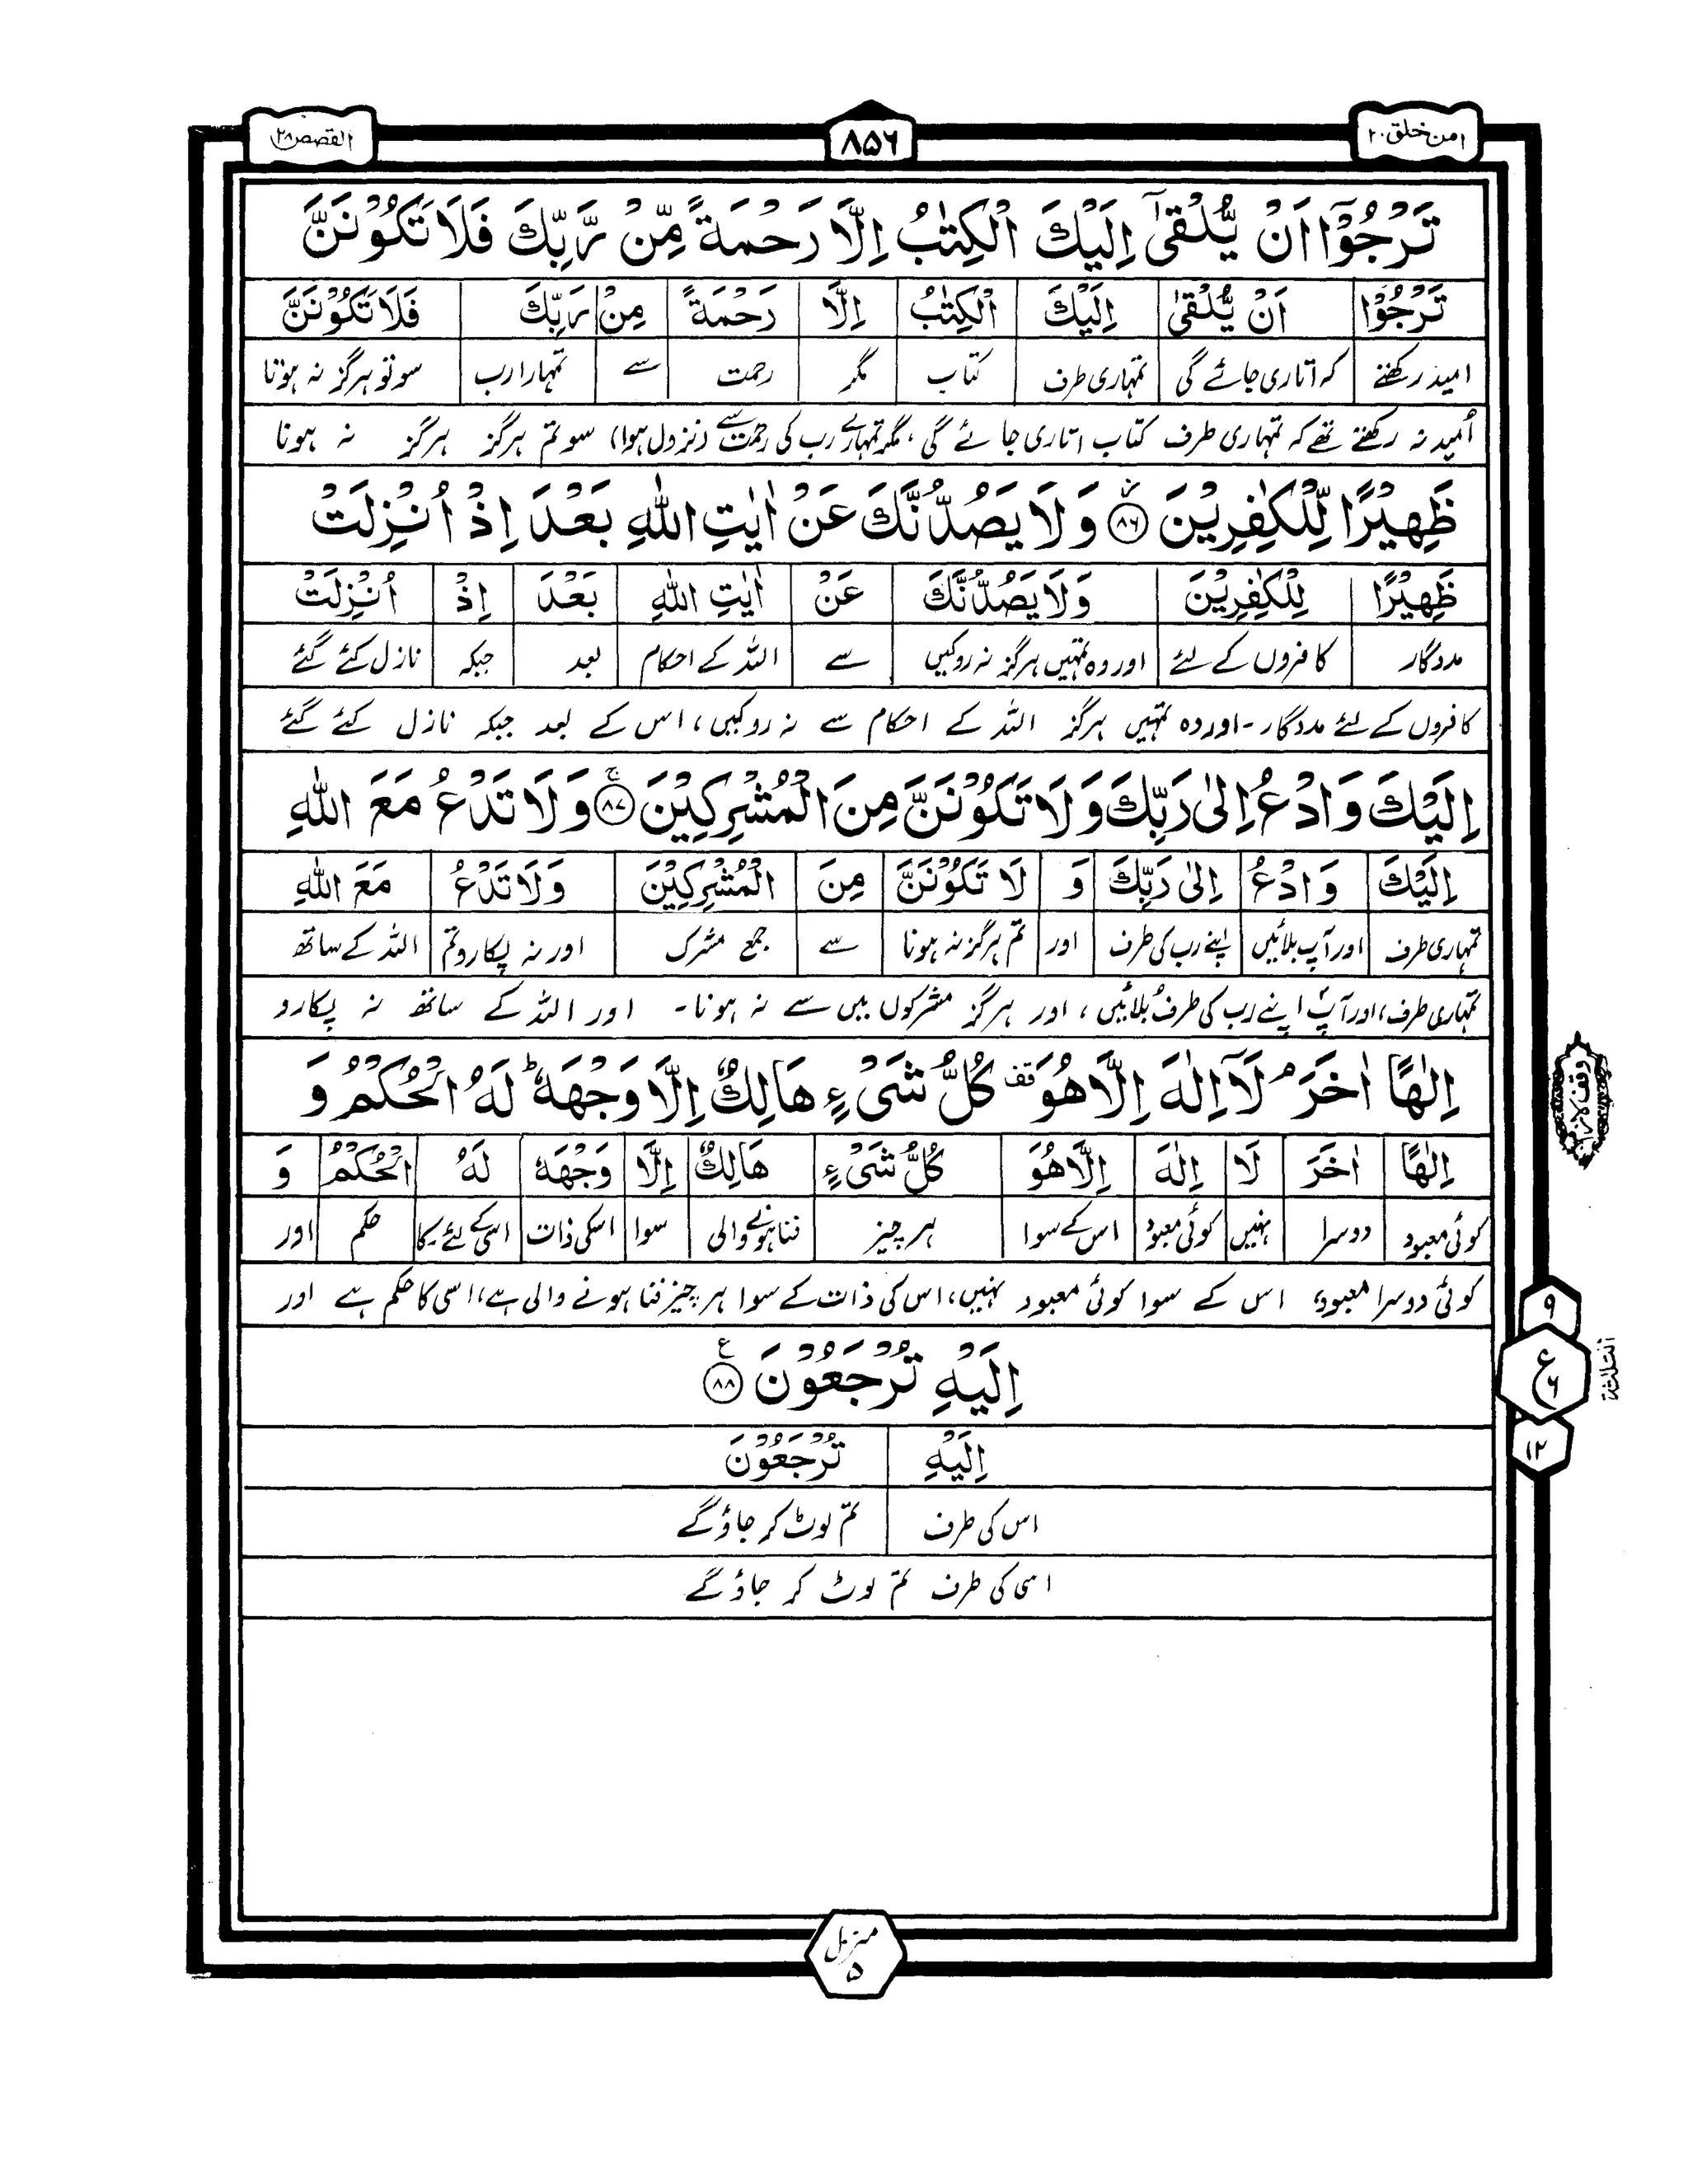 امن خلق ۲۰
۸۵۶
القصص ۲۸
تَرْجُوْۤا اَنْ يُّلْقٰۤى اِلَيْكَ الْكِتٰبُ اِلَّا رَحْمَةً مِّنْ رَّبِّكَ فَلَا تَكُوْنَنَّ
تَرْجُوْا اَنْ يُّلْقٰى اِلَيْكَ الْكِتٰبُ اِلَّا رَحْمَةً مِنْ رَبِّكَ فَلَا تَكُوْنَنَّ
امید رکھتے کہ اتاری جائے گی تمہاری طرف کتاب مگر رحمت سے تمہارا رب سو تو ہرگز نہ ہوتا
اُمید نہ رکھتے تھے کہ تمہاری طرف کتاب اتاری جائے گی، مگر تمہارے رب کی رحمت سے (نزول ہوا) سو تم ہرگز ہرگز نہ ہونا
ظَهِيْرًا لِّلْكٰفِرِيْنَ ۸۶ وَلَا يَصُدُّنَّكَ عَنْ اٰيٰتِ اللّٰهِ بَعْدَ اِذْ اُنْزِلَتْ
ظَهِيْرًا لِلْكٰفِرِيْنَ وَلَا يَصُدُّنَّكَ عَنْ اٰيٰتِ اللّٰهِ بَعْدَ اِذْ اُنْزِلَتْ
مددگار کافروں کے لئے اور وہ تمہیں ہرگز نہ روکیں سے اللہ کے احکام بعد جبکہ نازل کئے گئے
کافروں کے لئے مددگار ۔ اور وہ تمہیں ہرگز اللہ کے احکام سے نہ روکیں، اس کے بعد جبکہ نازل کئے گئے
اِلَيْكَ وَادْعُ اِلٰى رَبِّكَ وَلَا تَكُوْنَنَّ مِنَ الْمُشْرِكِيْنَ ۚ ۸۷ وَلَا تَدْعُ مَعَ اللّٰهِ
اِلَيْكَ وَادْعُ اِلٰى رَبِّكَ وَ لَا تَكُوْنَنَّ مِنَ الْمُشْرِكِيْنَ وَلَا تَدْعُ مَعَ اللّٰهِ
تمہاری طرف اور آپ بلائیں اپنے رب کی طرف اور تم ہرگز نہ ہونا سے جمع مشرک اور نہ پکارو تم اللہ کے ساتھ
تمہاری طرف، اور آپؐ اپنے رب کی طرف بُلائیں، اور ہرگز مشرکوں میں سے نہ ہونا۔ اور اللہ کے ساتھ نہ پکارو
اِلٰهًا اٰخَرَ ۘ لَاۤ اِلٰهَ اِلَّا هُوَ قف كُلُّ شَىْءٍ هَالِكٌ اِلَّا وَجْهَهٗ ؕ لَهُ الْحُكْمُ وَ
اِلٰهًا اٰخَرَ لَا اِلٰهَ اِلَّا هُوَ كُلُّ شَىْءٍ هَالِكٌ اِلَّا وَجْهَهٗ لَهُ الْحُكْمُ وَ
کوئی معبود دوسرا نہیں کوئی معبود اس کے سوا ہر چیز فنا ہونے والی سوا اسکی ذات اسی کے لئے ۔ کا حکم اور
کوئی دوسرا معبود، اس کے سوا کوئی معبود نہیں، اس کی ذات کے سوا ہر چیز فنا ہونے والی ہے، اسی کا حکم ہے اور
اِلَيْهِ تُرْجَعُوْنَ ۸۸ ع
اِلَيْهِ تُرْجَعُوْنَ
اس کی طرف تم لوٹ کر جاؤ گے
اسی کی طرف تم لوٹ کر جاؤ گے
وقف لازم
۹
ع ۶
۱۲
الثلثة
منزل ۵